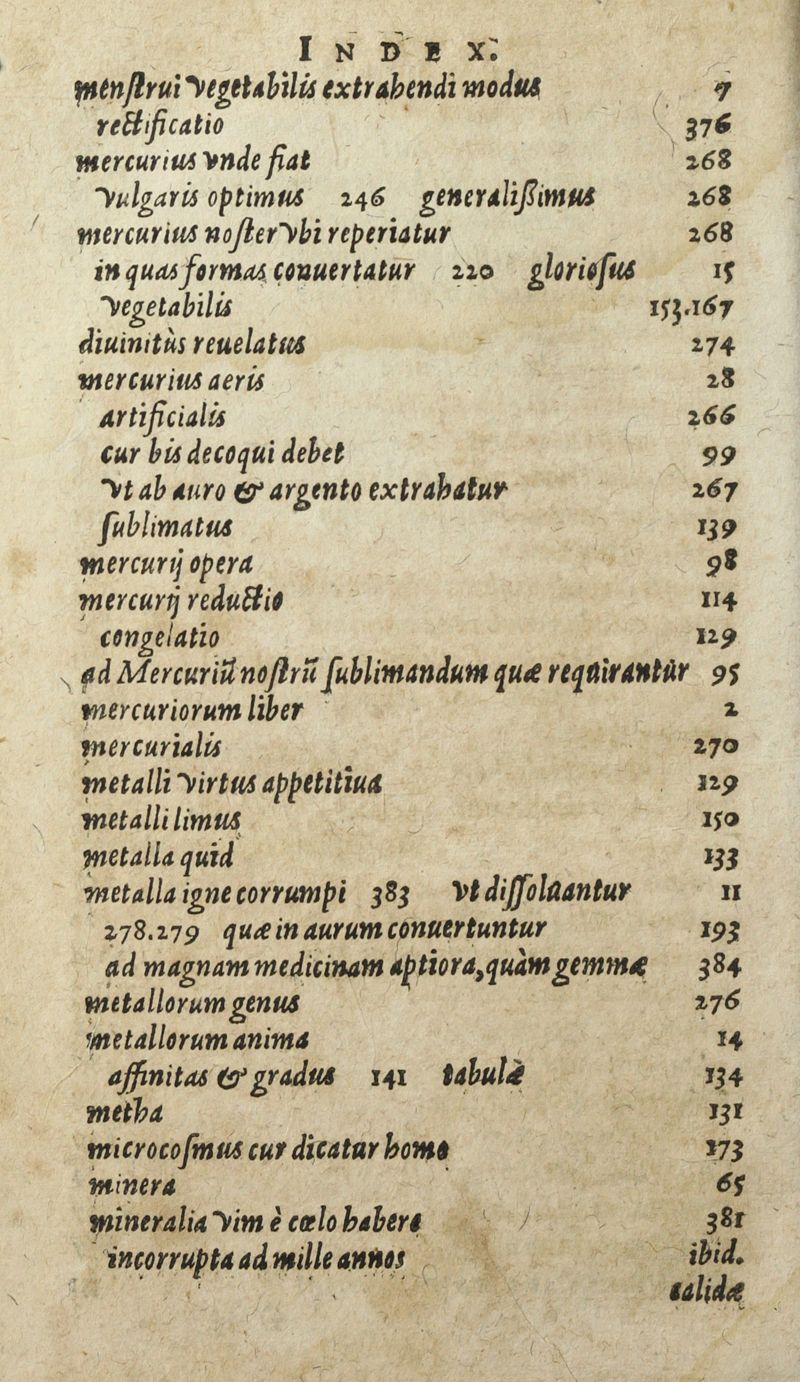 INDEX.
menſtrui vegetabilis extrahendi modus 7
rectificatio 376
mercurius vnde fiat 268
vulgaris optimus 246 generaliſſimus 268
mercurius noſter vbi reperiatur 268
in quas formas conuertatur 220 glorioſus 15
vegetabilis 153.167
diuinitùs reuelatus 274
mercurius aeris 28
artificialis 266
cur bis decoqui debet 99
vt ab auro & argento extrahatur 267
ſublimatus 139
mercurij opera 98
mercurij reductio 114
congelatio 129
ad Mercuriū noſtrū ſublimandum quæ requirantur 95
mercuriorum liber 2
mercurialis 270
metalli virtus appetitiua 129
metalli limus 150
metalla quid 133
metalla igne corrumpi 383 vt diſſoluantur 11
278.279 quæ in aurum conuertuntur 193
ad magnam medicinam aptiora, quàm gemmæ 384
metallorum genus 276
metallorum anima 14
affinitas & gradus 141 tabula 134
metha 131
microcoſmus cur dicatur homo 173
minera 65
mineralia vim è cœlo habere 381
incorrupta ad mille annos ibid.
calidæ